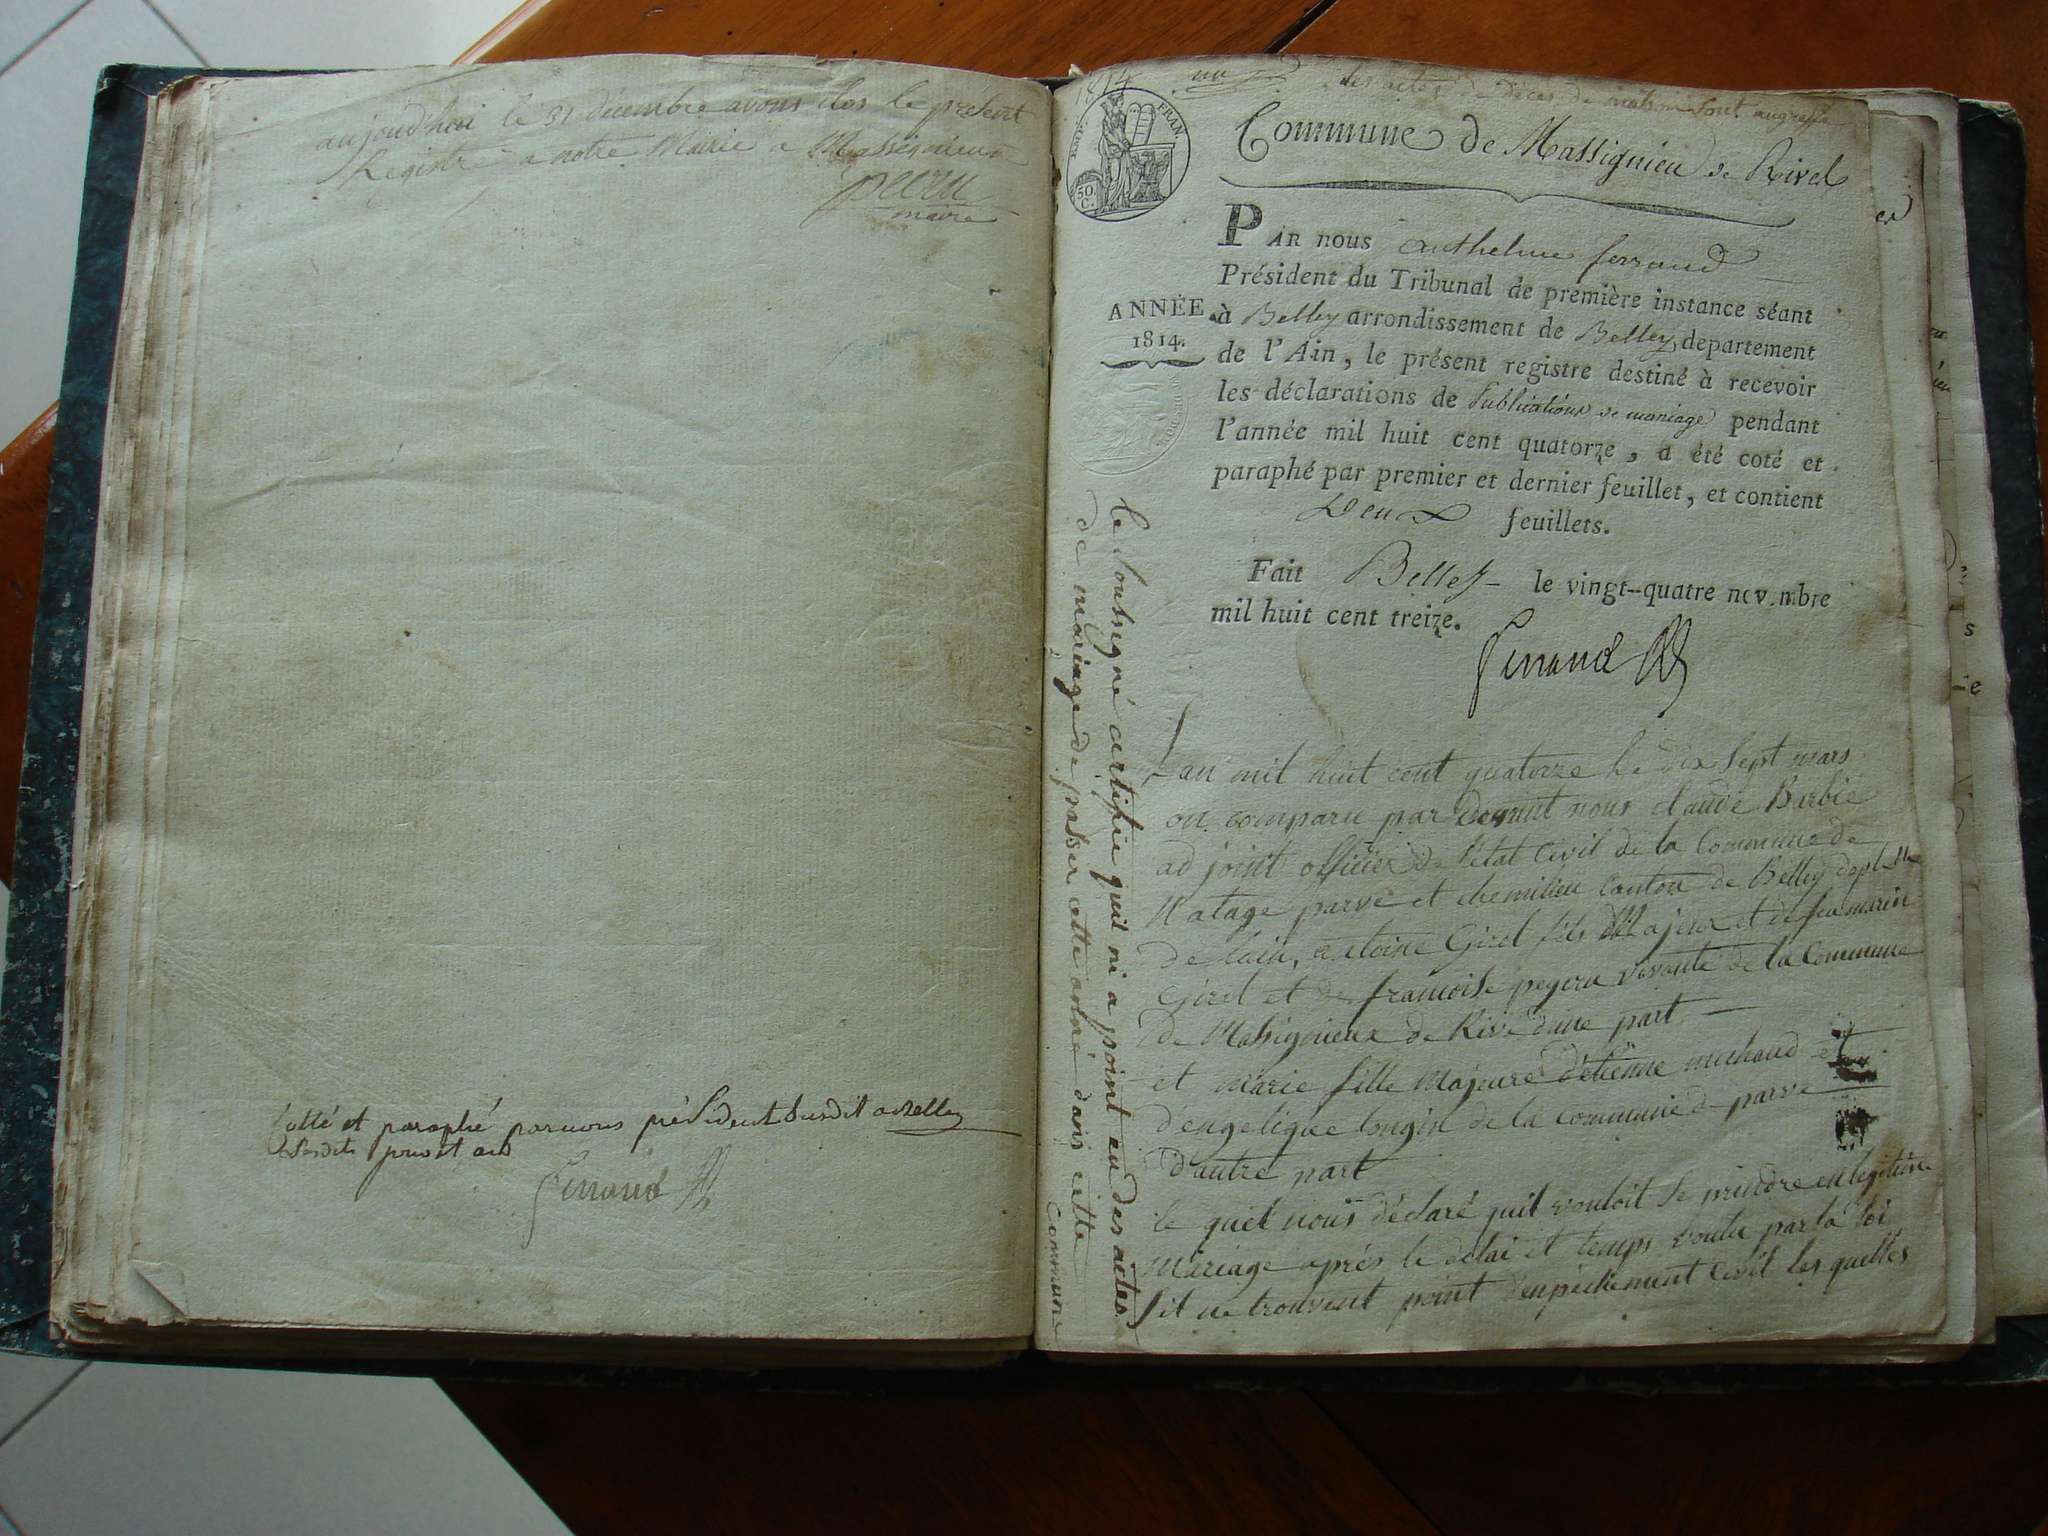 aujourd'hui le 31 décembre avons clos le présent
Registre a notre Mairie a Massignieux
peeru
maire
Cotté et paraphé par nous président susdit a Belley
Ferrand
1814
les actes de décès de
Commune de Massignieu de Rivel
50
C.
FRAN.
PAR nous anthelme ferrand
Président du Tribunal de première instance séant
à Belley arrondissement de Belley departement
de l'Ain, le présent registre destiné à recevoir
les déclarations de Publications de mariage pendant
l'année mil huit cent quatorze, a été coté et
paraphé par premier et dernier feuillet, et contient
Deux feuillets.
ANNÉE
1814.
Fait Belley le vingt-quatre novembre
mil huit cent treize.
Ferrand
Le soussigné certifie quil ni a point eu des actes
de mariage de passer cette année dans cette
commune
Lan mil huit cent quatorze le dix sept mars
on comparu par devant nous claude Barbié
adjoint officier de l'état Civil de la Commune de
Natage parve et chemilieu Canton de Belley dept
de lain, antoine Girel fils Majeur et de feu marin
Girel et de francoise peyeru vivante de la Commune
de Massignieux de Rive dune part
et marie fille Majeure d'étienne michaud et
d'engelique longin de la commune de parve
d'autre part
le quel nous déclaré quil vouloit se prendre en legitime
Mariage après le délai et temps voulu par la loi
sil ne trouvent point d'enpéchement Civil les quelles